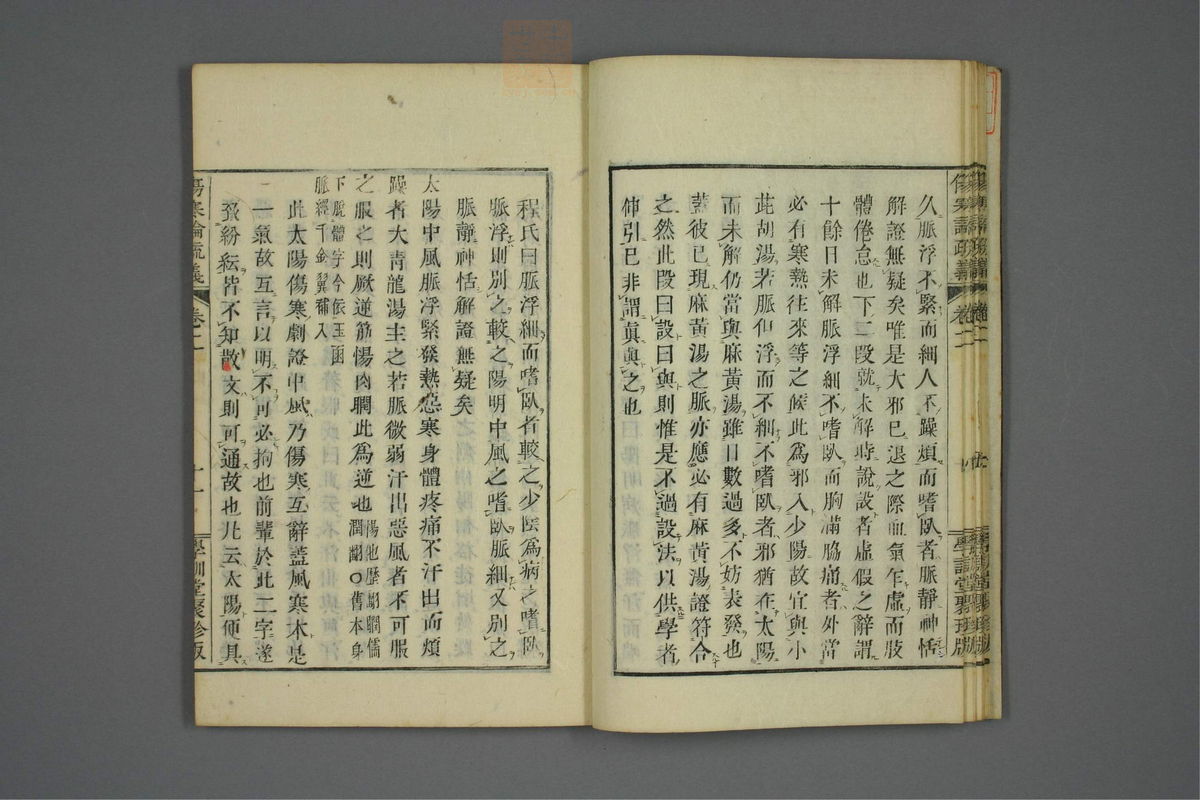 久脈浮不緊而細人不躁煩而嗜臥者脈靜神恬
解證無疑矣唯是大邪已退之際血氣乍虛而肢
體倦怠也下二段就未解時說設者虛假之辭謂
十餘日未解脈浮細不嗜臥而胸滿脇痛者外當
必有寒熱往來等之候此為邪入少陽故宜與小
茈胡湯若脈但浮而不細不嗜臥者邪猶在太陽
而未解仍當與麻黃湯雖日數過多不妨表發也
蓋彼已現麻黃湯之脈亦應必有麻黃湯證符合
之然此段曰設曰與則惟是不過設法以供學者
伸引已非謂真與之也
傷寒論疏義
卷二
學訓堂聚珍版
程氏曰脈浮細而嗜臥者較之少陰為病之嗜臥
脈浮則別之較之陽明中風之嗜臥脈細又別之
脈靜神恬解證無疑矣
太陽中風脈浮緊發熱惡寒身體疼痛不汗出而煩
躁者大青龍湯主之若脈微弱汗出惡風者不可服
之服之則厥逆筋惕肉瞤此為逆也
惕他歷切瞤儒
潤翻○舊本身
下脫體字今依玉函
脈經千金翼補入
此太陽傷寒劇證中風乃傷寒互辭蓋風寒本是
一氣故互言以明不可必拘也前輩於此二字遂
致紛紜皆不知散文則可通故也凡云太陽便具
傷寒論疏義
卷二
十一
學訓堂聚珍版